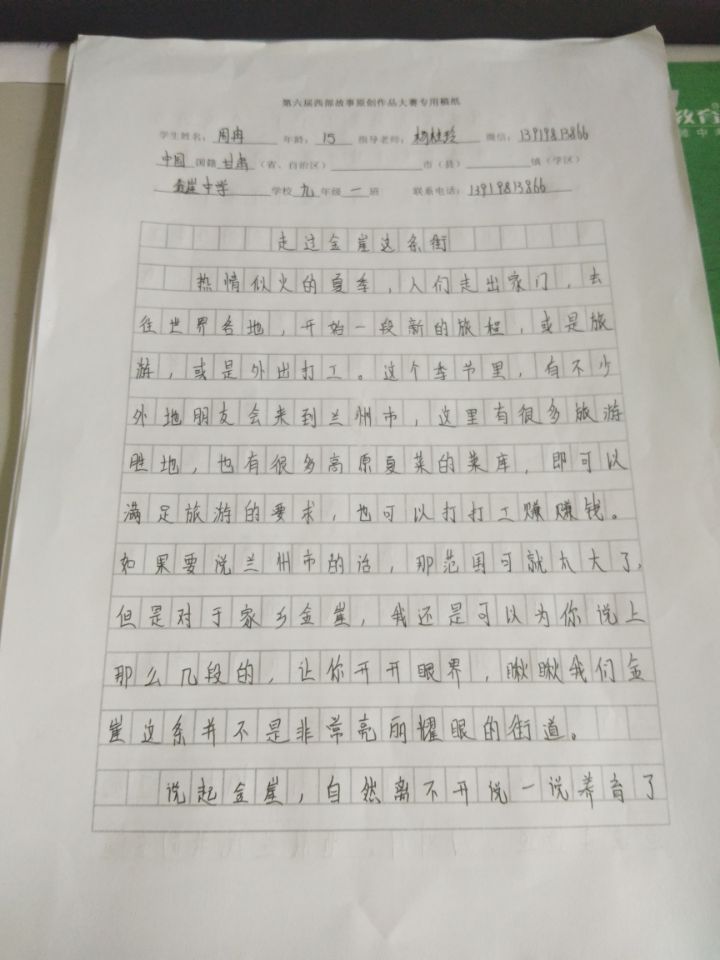 第六届西部故事原创作品大赛专用稿纸
学生姓名：周冉 年龄：15 指导老师：杨桂玲 微信：13919813866
中国 国籍 甘肃（省、自治区） 市（县） 镇（学区）
金崖中学 学校 九 年级 一 班 联系电话：13919813866
走过金崖这条街
热情似火的夏季，人们走出家门，去
往世界各地，开始一段新的旅程，或是旅
游，或是外出打工。这个季节里，有不少
外地朋友会来到兰州市，这里有很多旅游
胜地，也有很多高原夏菜的菜库，即可以
满足旅游的要求，也可以打打工赚赚钱。
如果要说兰州市的话，那范围可就太大了，
但是对于家乡金崖，我还是可以为你说上
那么几段的，让你开开眼界，瞅瞅我们金
崖这条并不是非常亮丽耀眼的街道。
说起金崖，自然离不开说一说养育了
教育